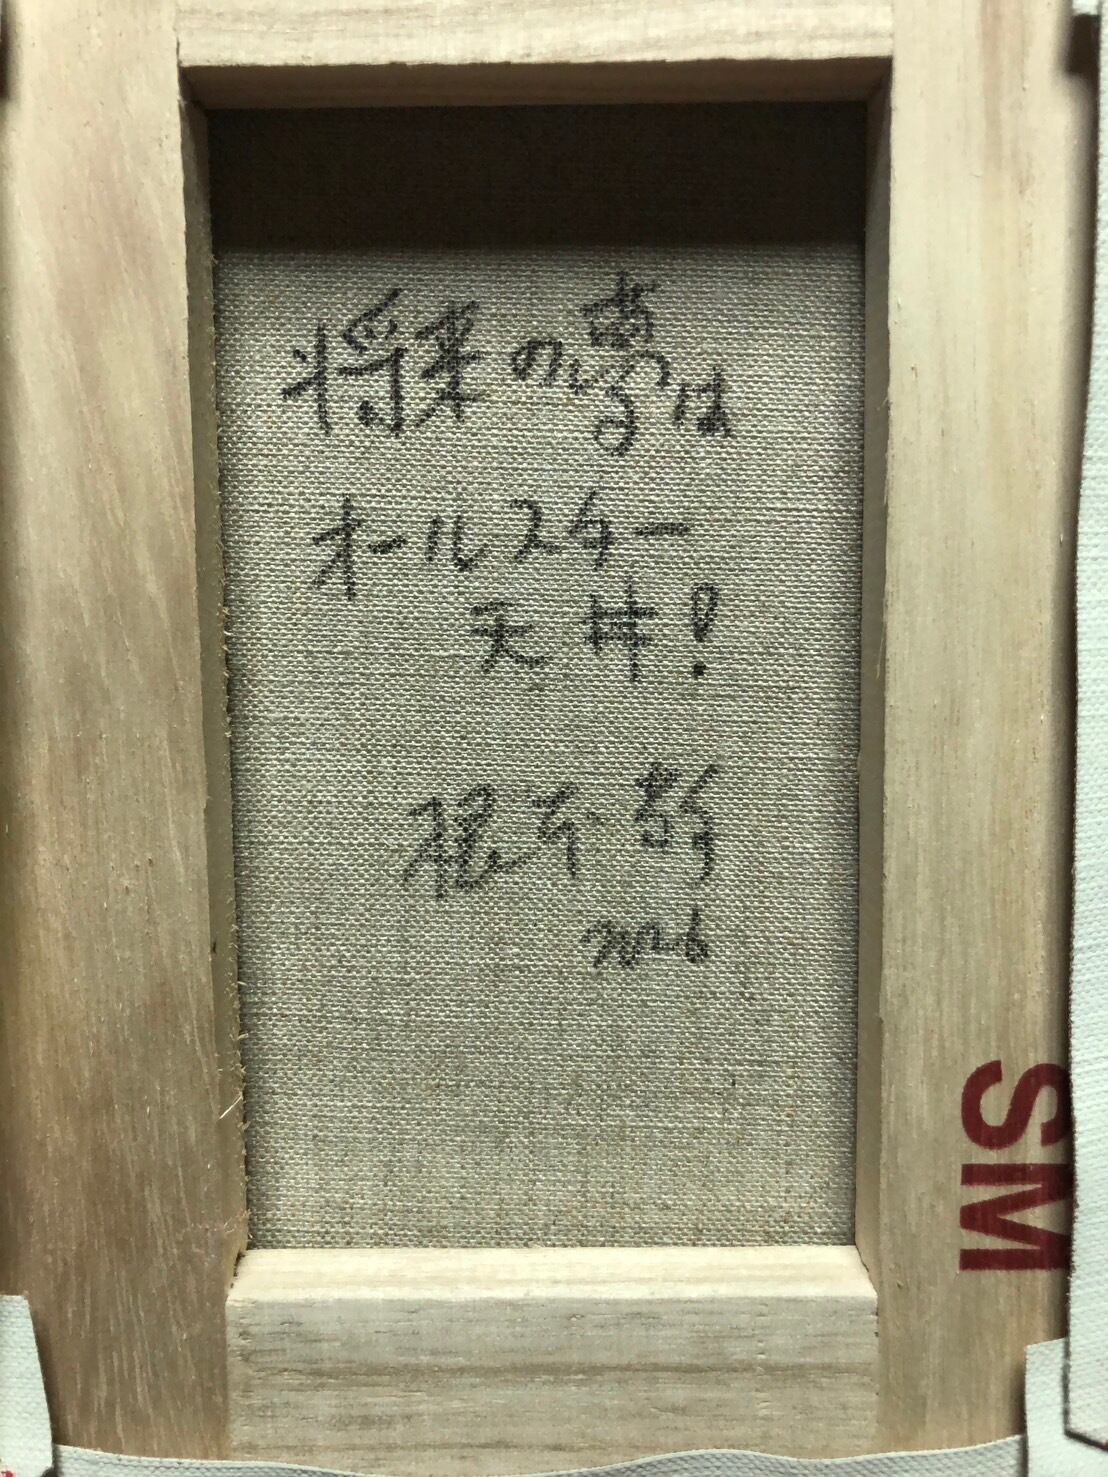 将来の夢は
オールスター
天丼!
根本敬
SM